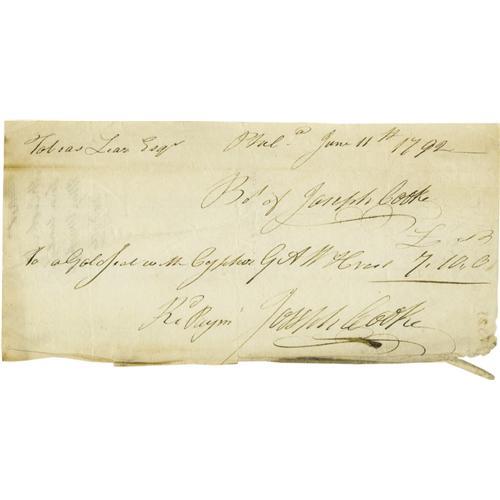 Tobias Lear Esqr Phila June 11th 1792
Bt of Joseph Cooke
£ S D
To a Gold Seal with Cypher G A W 7.10.0
Rd Paymt Joseph Cooke